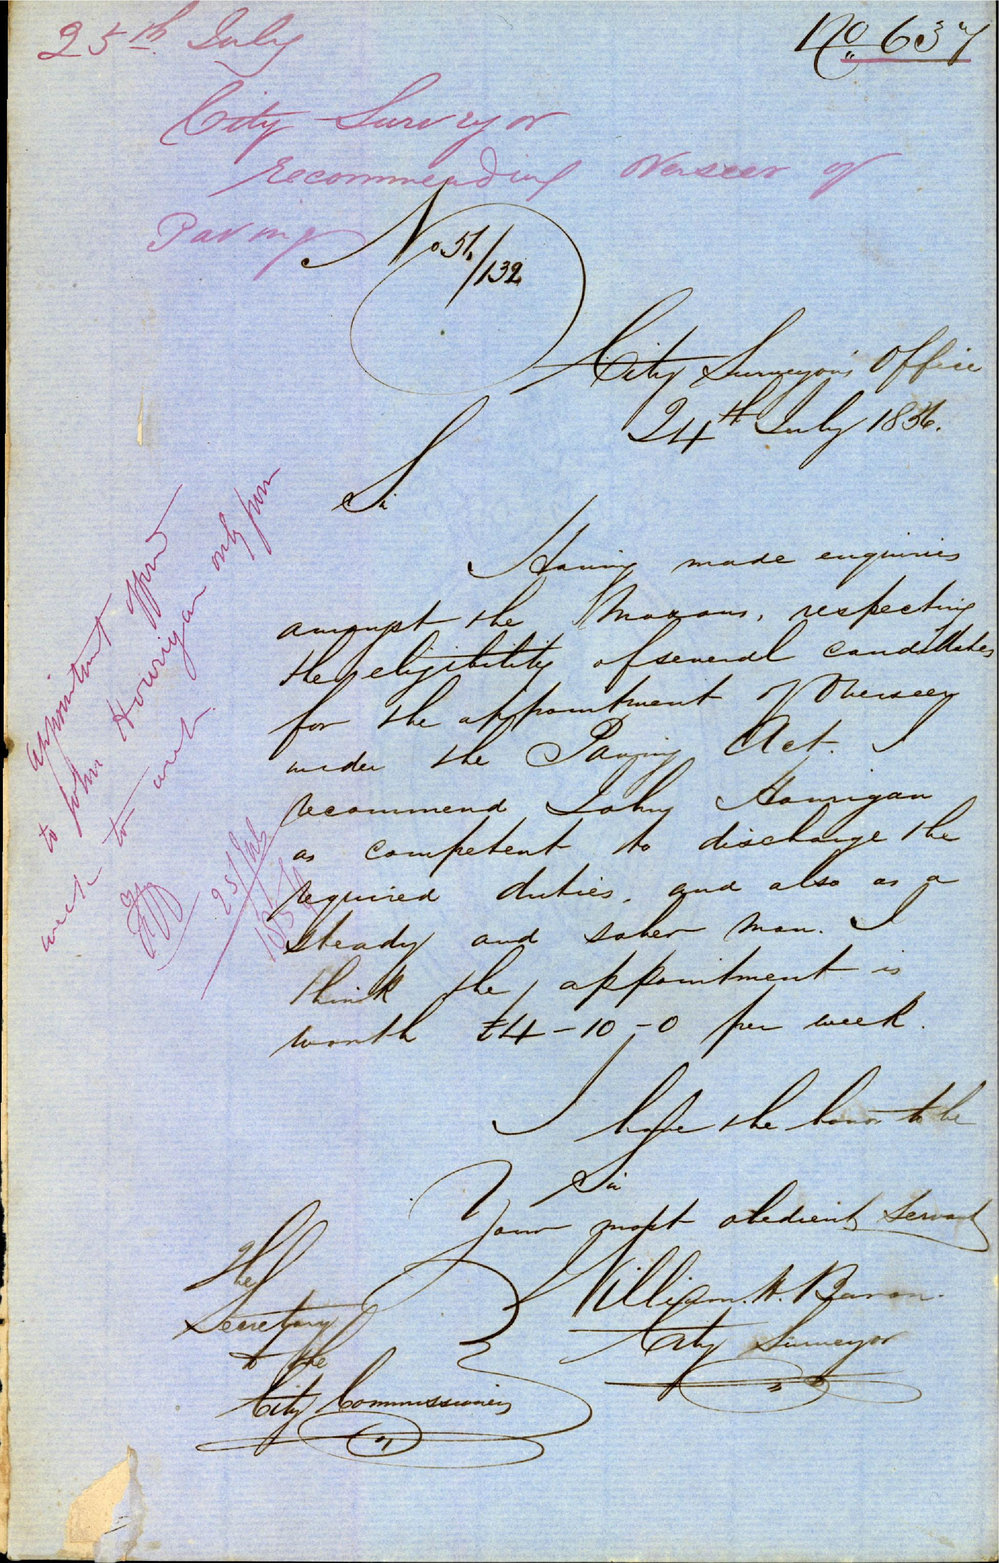 25th July
No 637
City Surveyor
recommending Overseer of
Paving
No 54/132
City Surveyor's Office
24th July 1854.
Sir
Having made enquiries
amongst the Masons, respecting
the eligibility of several candidates
for the appointment of Overseer
under the Paving Act. I
recommend John Hourigan
as competent to discharge the
required duties, and also as a
steady and sober man. I
think the appointment is
worth £4-10-0 per week.
I have the honor to be
Sir
Your most obedient servant
William. H. Baron.
City Surveyor
The
Secretary
to the
City Commissioners
appointment
to John Hourigan only from
week to week
25 July
1854